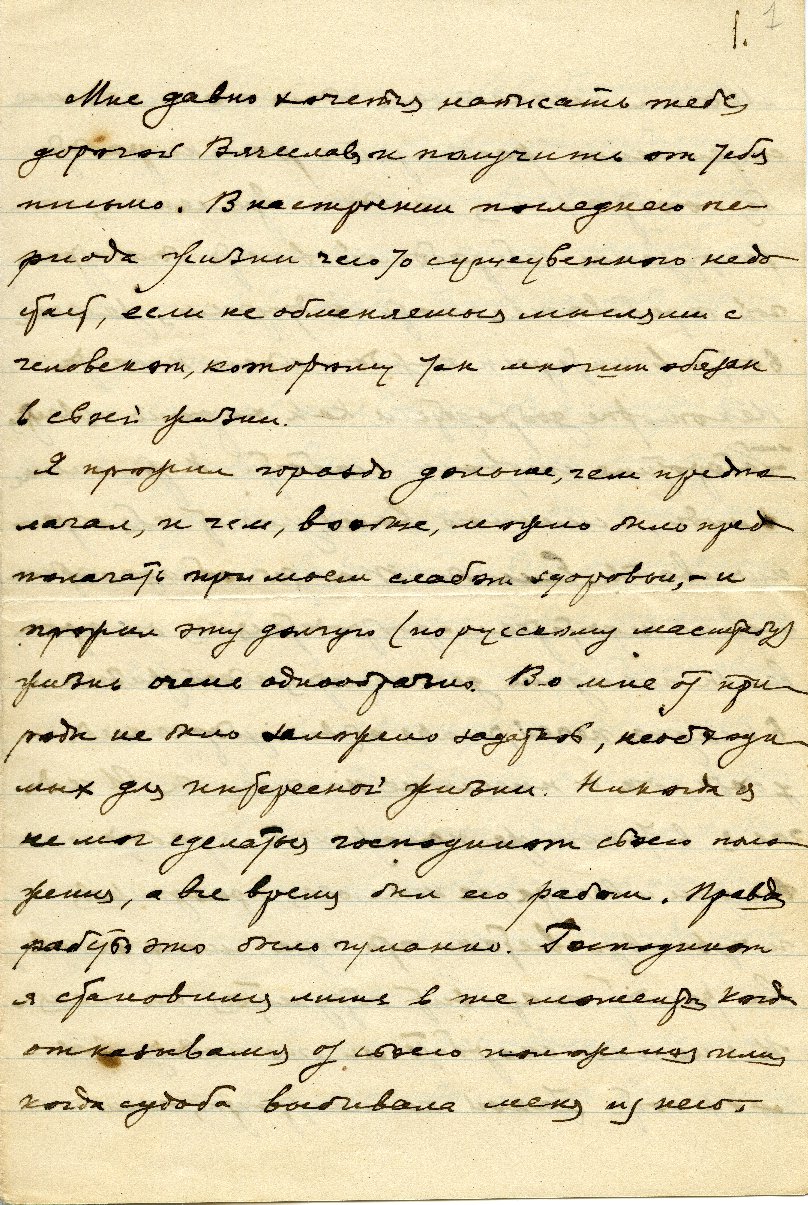 1. 1
Мне давно хочется написать тебе,
дорогой Вячеслав, и получить от тебя
письмо. В настроении последнего пе-
риода жизни чего то существенного недо
стает, если не обменяешься мыслями с
человеком, которому так многим обязан
в своей жизни.
Я прожил гораздо дольше, чем предпо
лагал, и чем, вообще, можно было пред
полагать при моем слабом здоровьи, – и
прожил эту долгую (по русскому масштабу)
жизнь очень однообразно. Во мне от при-
роды не было заложено задатков, необходи-
мых для интересной жизни. Никогда я
не мог сделаться господином своего поло-
жения, а все время был его рабом. Правда
рабство это было гуманно. Господином
я становился лишь в те моменты, когда
отказывался от своего положения или
когда судьба выбивала меня из него.